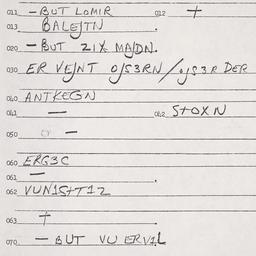 011 — BUT LOMIR 012 +
013 BALEJTN
020 — BUT ZIX MAJDN.
030 ER VEJNT OJS3RN/OJS3R DER
040 ANTKEGN
041 — 042 STOXN
050 —
060 ERG3C
061 —
062 VUN1S+T12
063 +
070 — BUT VU ERV1L